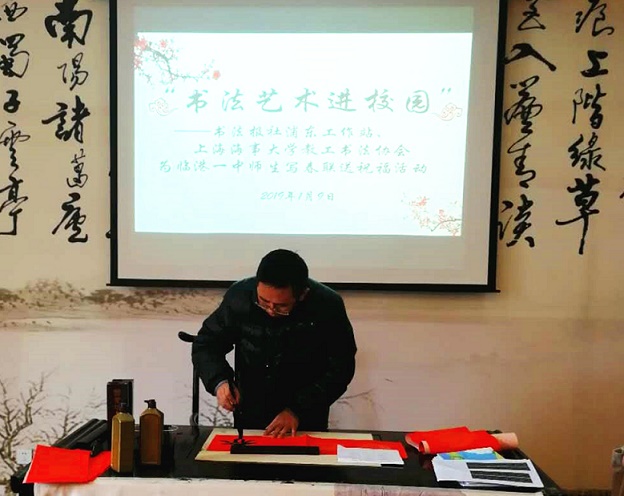 “书法艺术进校园”
——书法报社浦东工作站、
上海海事大学教工书法协会
为临港一中师生写春联送祝福活动
2019年1月9日
痕上階綠草
色入簾青談
南陽諸葛廬
西蜀子雲亭